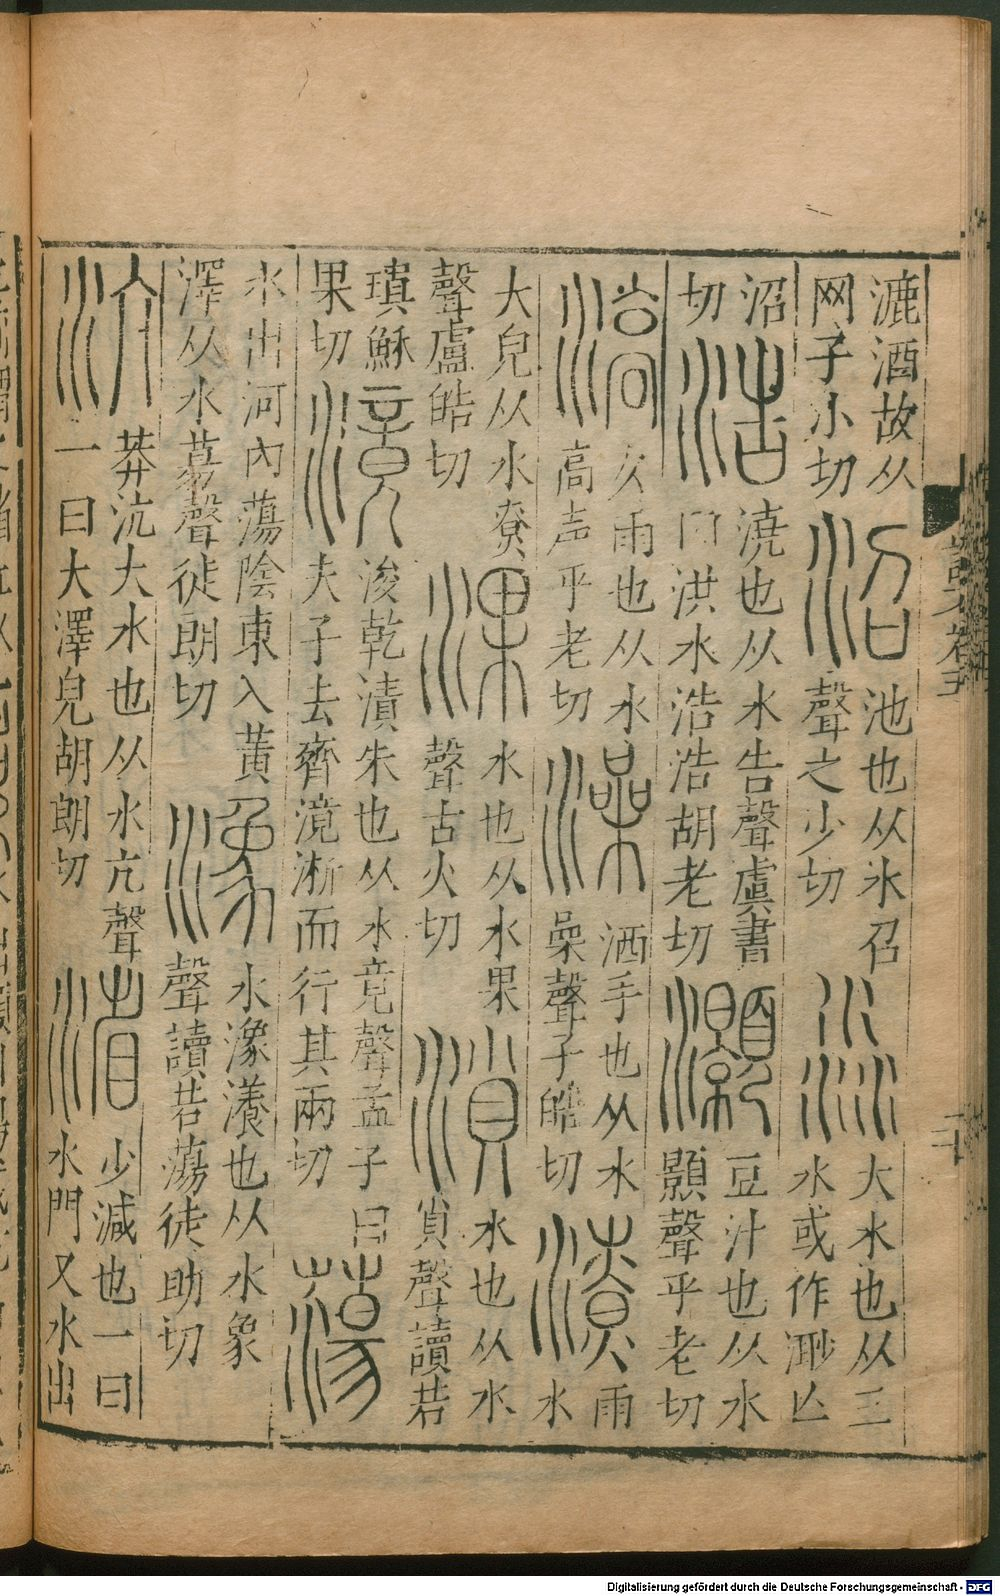 漉酒故从网子小切沼池也从水召聲之少切淼大水也从三水或作渺亡
沼切浩澆也从水告聲虞書曰洪水浩浩胡老切灝豆汁也从水顥聲乎老切
滈久雨也从水高声乎老切澡洒手也从水喿聲子皓切潦雨水
大皃从水尞聲盧皓切淉水也从水果聲古火切溑水也从水𧴪聲讀若
瑣穌果切滰浚乾漬朱也从水竟聲孟子曰夫子去齊滰淅而行其兩切蕩
水出河內蕩陰東入黃澤从水募聲徒朗切潒水潒瀁也从水象聲讀若蕩徒助切
沆莽沆大水也从水亢聲一曰大澤皃胡朗切渻少減也一曰水門又水出
說文卷五
二十
Digitalisierung gefördert durch die Deutsche Forschungsgemeinschaft - DFG